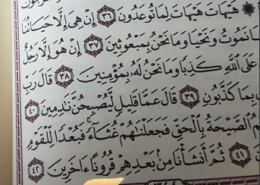 هَيْهَاتَ هَيْهَاتَ لِمَا تُوعَدُونَ ٣٦ إِنْ هِىَ إِلَّا حَيَاتُنَا
نَمُوتُ وَنَحْيَا وَمَا نَحْنُ بِمَبْعُوثِينَ ٣٧ إِنْ هُوَ إِلَّا رَجُلٌ
عَلَى اللَّهِ كَذِبًا وَمَا نَحْنُ لَهُ بِمُؤْمِنِينَ ٣٨ قَالَ رَبِّ
بِمَا كَذَّبُونِ ٣٩ قَالَ عَمَّا قَلِيلٍ لَّيُصْبِحُنَّ نَٰدِمِينَ ٤٠
الصَّيْحَةُ بِالْحَقِّ فَجَعَلْنَٰهُمْ غُثَآءً فَبُعْدًا لِّلْقَوْمِ
٤١ ثُمَّ أَنشَأْنَا مِنۢ بَعْدِهِمْ قُرُونًا ءَاخَرِينَ ٤٢